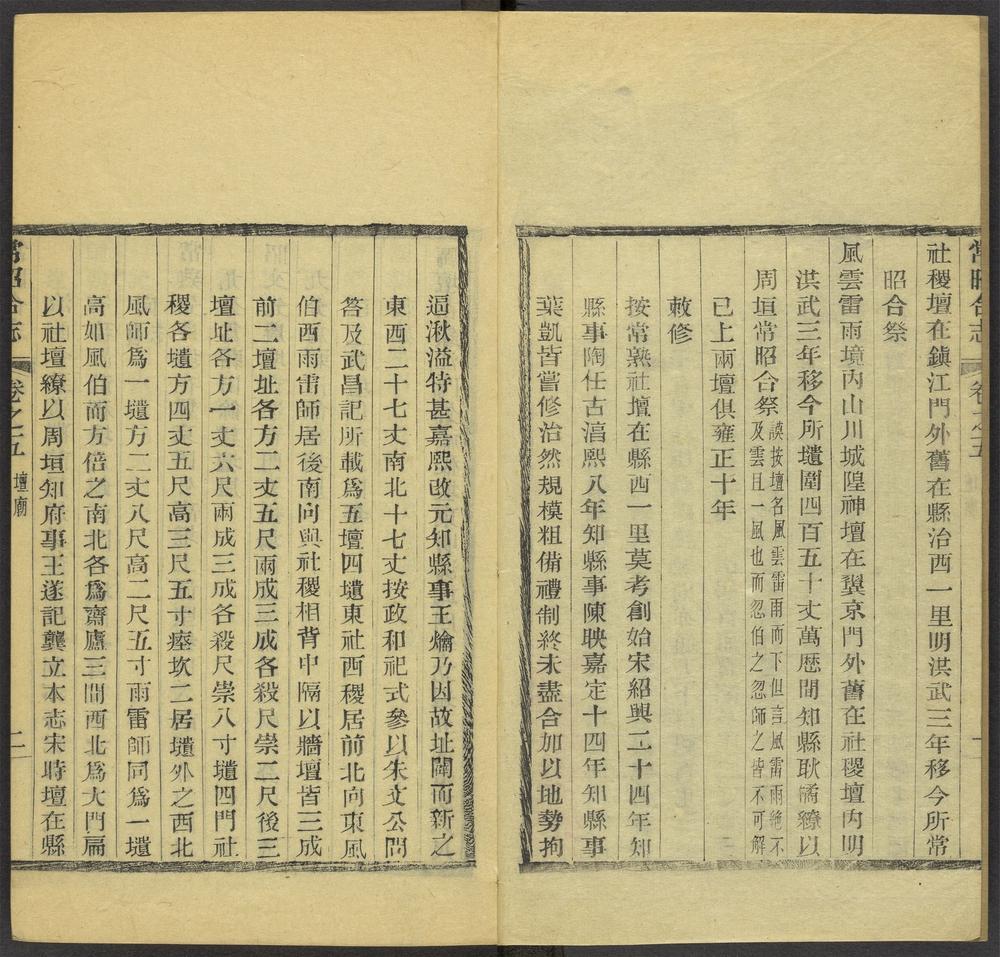 常昭合志
卷之五
社稷壇在鎮江門外舊在縣治西一里明洪武三年移今所常
昭合祭
風雲雷雨境內山川城隍神壇在翼京門外舊在社稷壇內明
洪武三年移今所壝圍四百五十丈萬歷間知縣耿橘繚以
周垣常昭合祭
謨按壇名風雲雷雨而下但言風雷雨絶不
及雲且一風也而忽伯之忽師之皆不可解
已上兩壇俱雍正十年
敕修
按常熟社壇在縣西一里莫考創始宋紹興二十四年知
縣事陶任古湻熙八年知縣事陳映嘉定十四年知縣事
葉凱皆嘗修治然規模粗備禮制終未盡合加以地勢拘
逼湫溢特甚嘉熙改元知縣事王爚乃因故址闢而新之
東西二十七丈南北十七丈按政和祀式參以朱文公問
答及武昌記所載爲五壇四壝東社西稷居前北向東風
伯西雨雷師居後南向與社稷相背中隔以牆壇皆三成
前二壇址各方二丈五尺兩成三成各殺尺崇二尺後三
壇址各方一丈六尺兩成三成各殺尺崇八寸壝四門社
稷各壝方四丈五尺高三尺五寸瘞坎二居壝外之西北
風師爲一壝方二丈八尺高二尺五寸雨雷師同爲一壝
高如風伯而方倍之南北各爲齋廬三間西北爲大門扁
以社壇繚以周垣知府事王遂記龔立本志宋時壇在縣
常昭合志
卷之五
壇廟
二